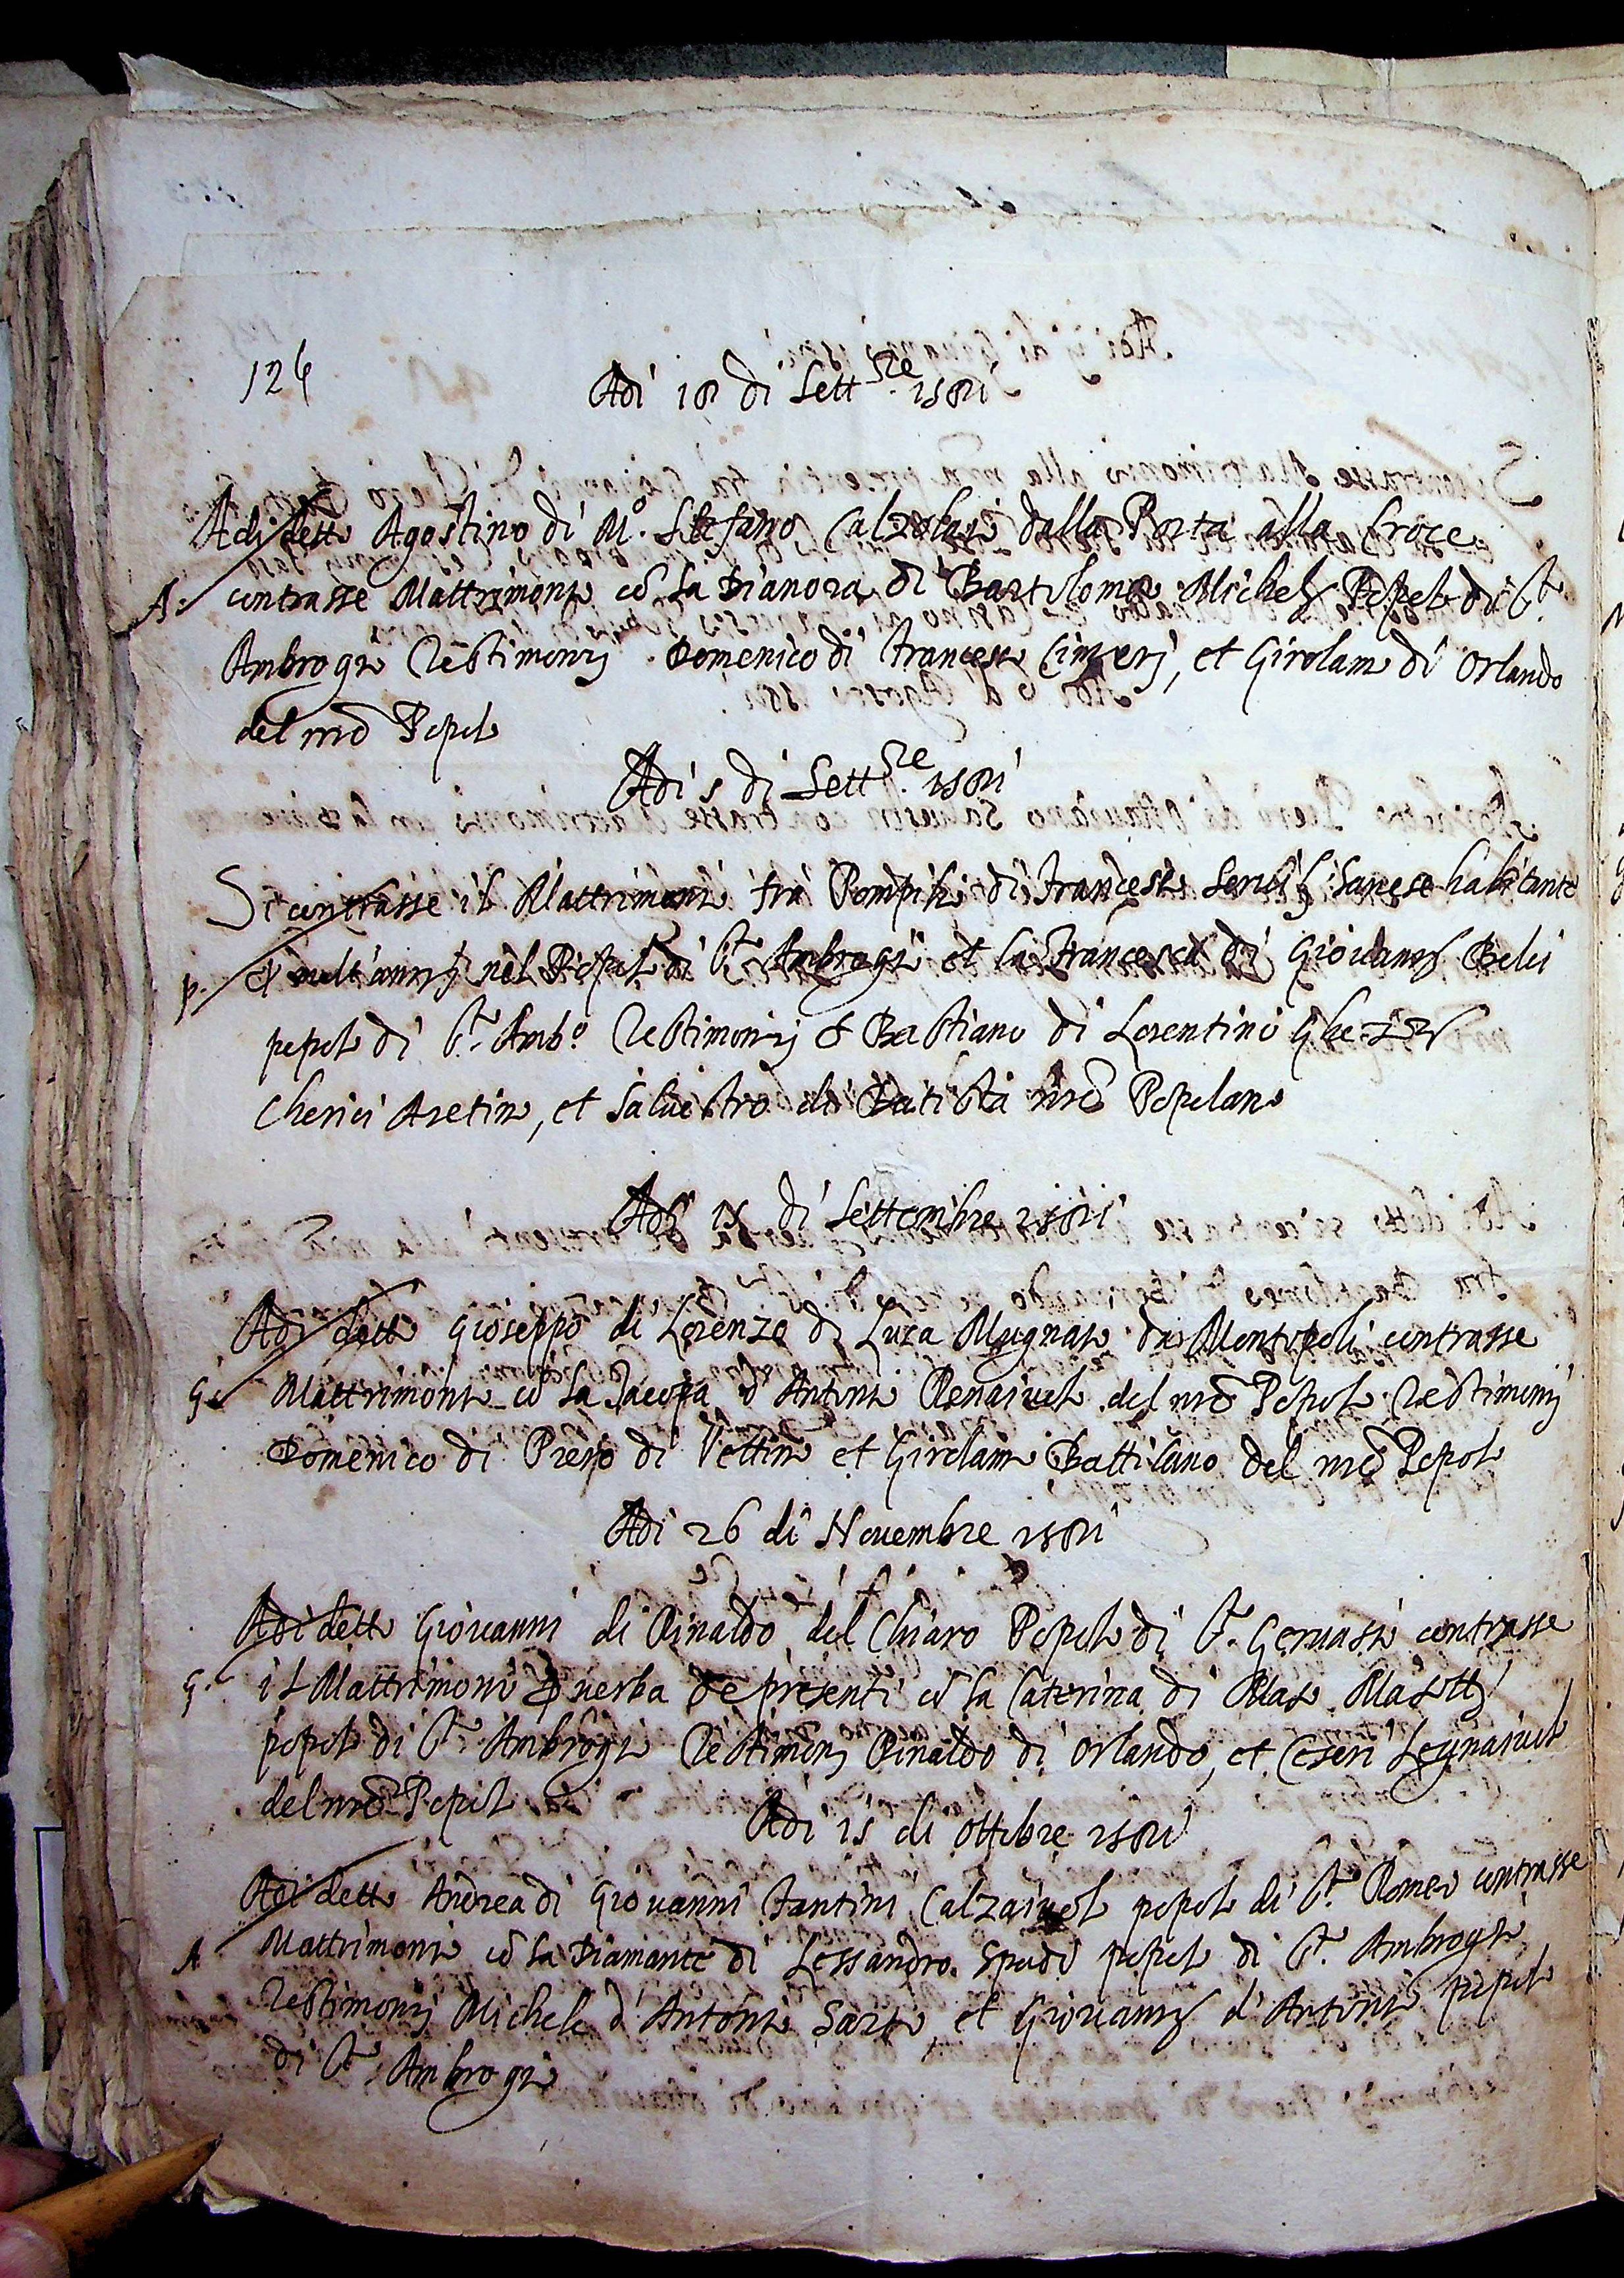 126
Adi 18 di Sett.bre 1581
Adi detto Agostino di M.o Stefano Calzolaio dalla Porta alla Croce
A. contrasse Mattrimonio cō la Dianora di Bartolomeo Michelj Popolo di S.to
Ambrogio Testimonij Domenico di Francesco, et Girolamo di Orlando
del mēo Popolo
Adi 5 di Sett.bre 1581
Si contrasse il Mattrimonio fra Pompilio di Francesco Sanese habitante
p. nel Popolo di S.to Ambrogio et la Francesca di Giovannj Belii
popolo di S.to Amb.o Testimonij Bastiano di Lorentino
Cherici Aretino, et Salvestro di Batista nrō Popolano
Adi 15 di Settembre 1581
Adi detto Gioseppo di Lorenzo di Luca Mugnaio da Montopoli contrasse
G. Mattrimonio cō la Jacopa d' Antonio Renaiuolo del mēo Popolo Testimonij
Domenico di Piero di Vettino et Girolamo Battilano del mēo Popolo
Adi 26 di Novembre 1581
Adi detto Giovanni di Rinaldo del Chiaro Popolo di S.to Gervasio contrasse
G. il Mattrimonio p verba de presenti cō la Caterina di Maso Masottj
popolo di S.to Ambrogio Testimonj Rinaldo di Orlando, et Ceseri Legnaiuolo
del mēo Popolo
Adi 15 di ottobre 1581
Adi detto Andrea di Giovanni Fantini Calzaiuolo popolo di S.to Romeo contrasse
A Mattrimonio cō la Diamante di Lessandro Spadi popolo di S.to Ambrogio
Testimonij Michele d' Antonio Sarto et Giovannj d' Antonio popolo
di S.to Ambrogio